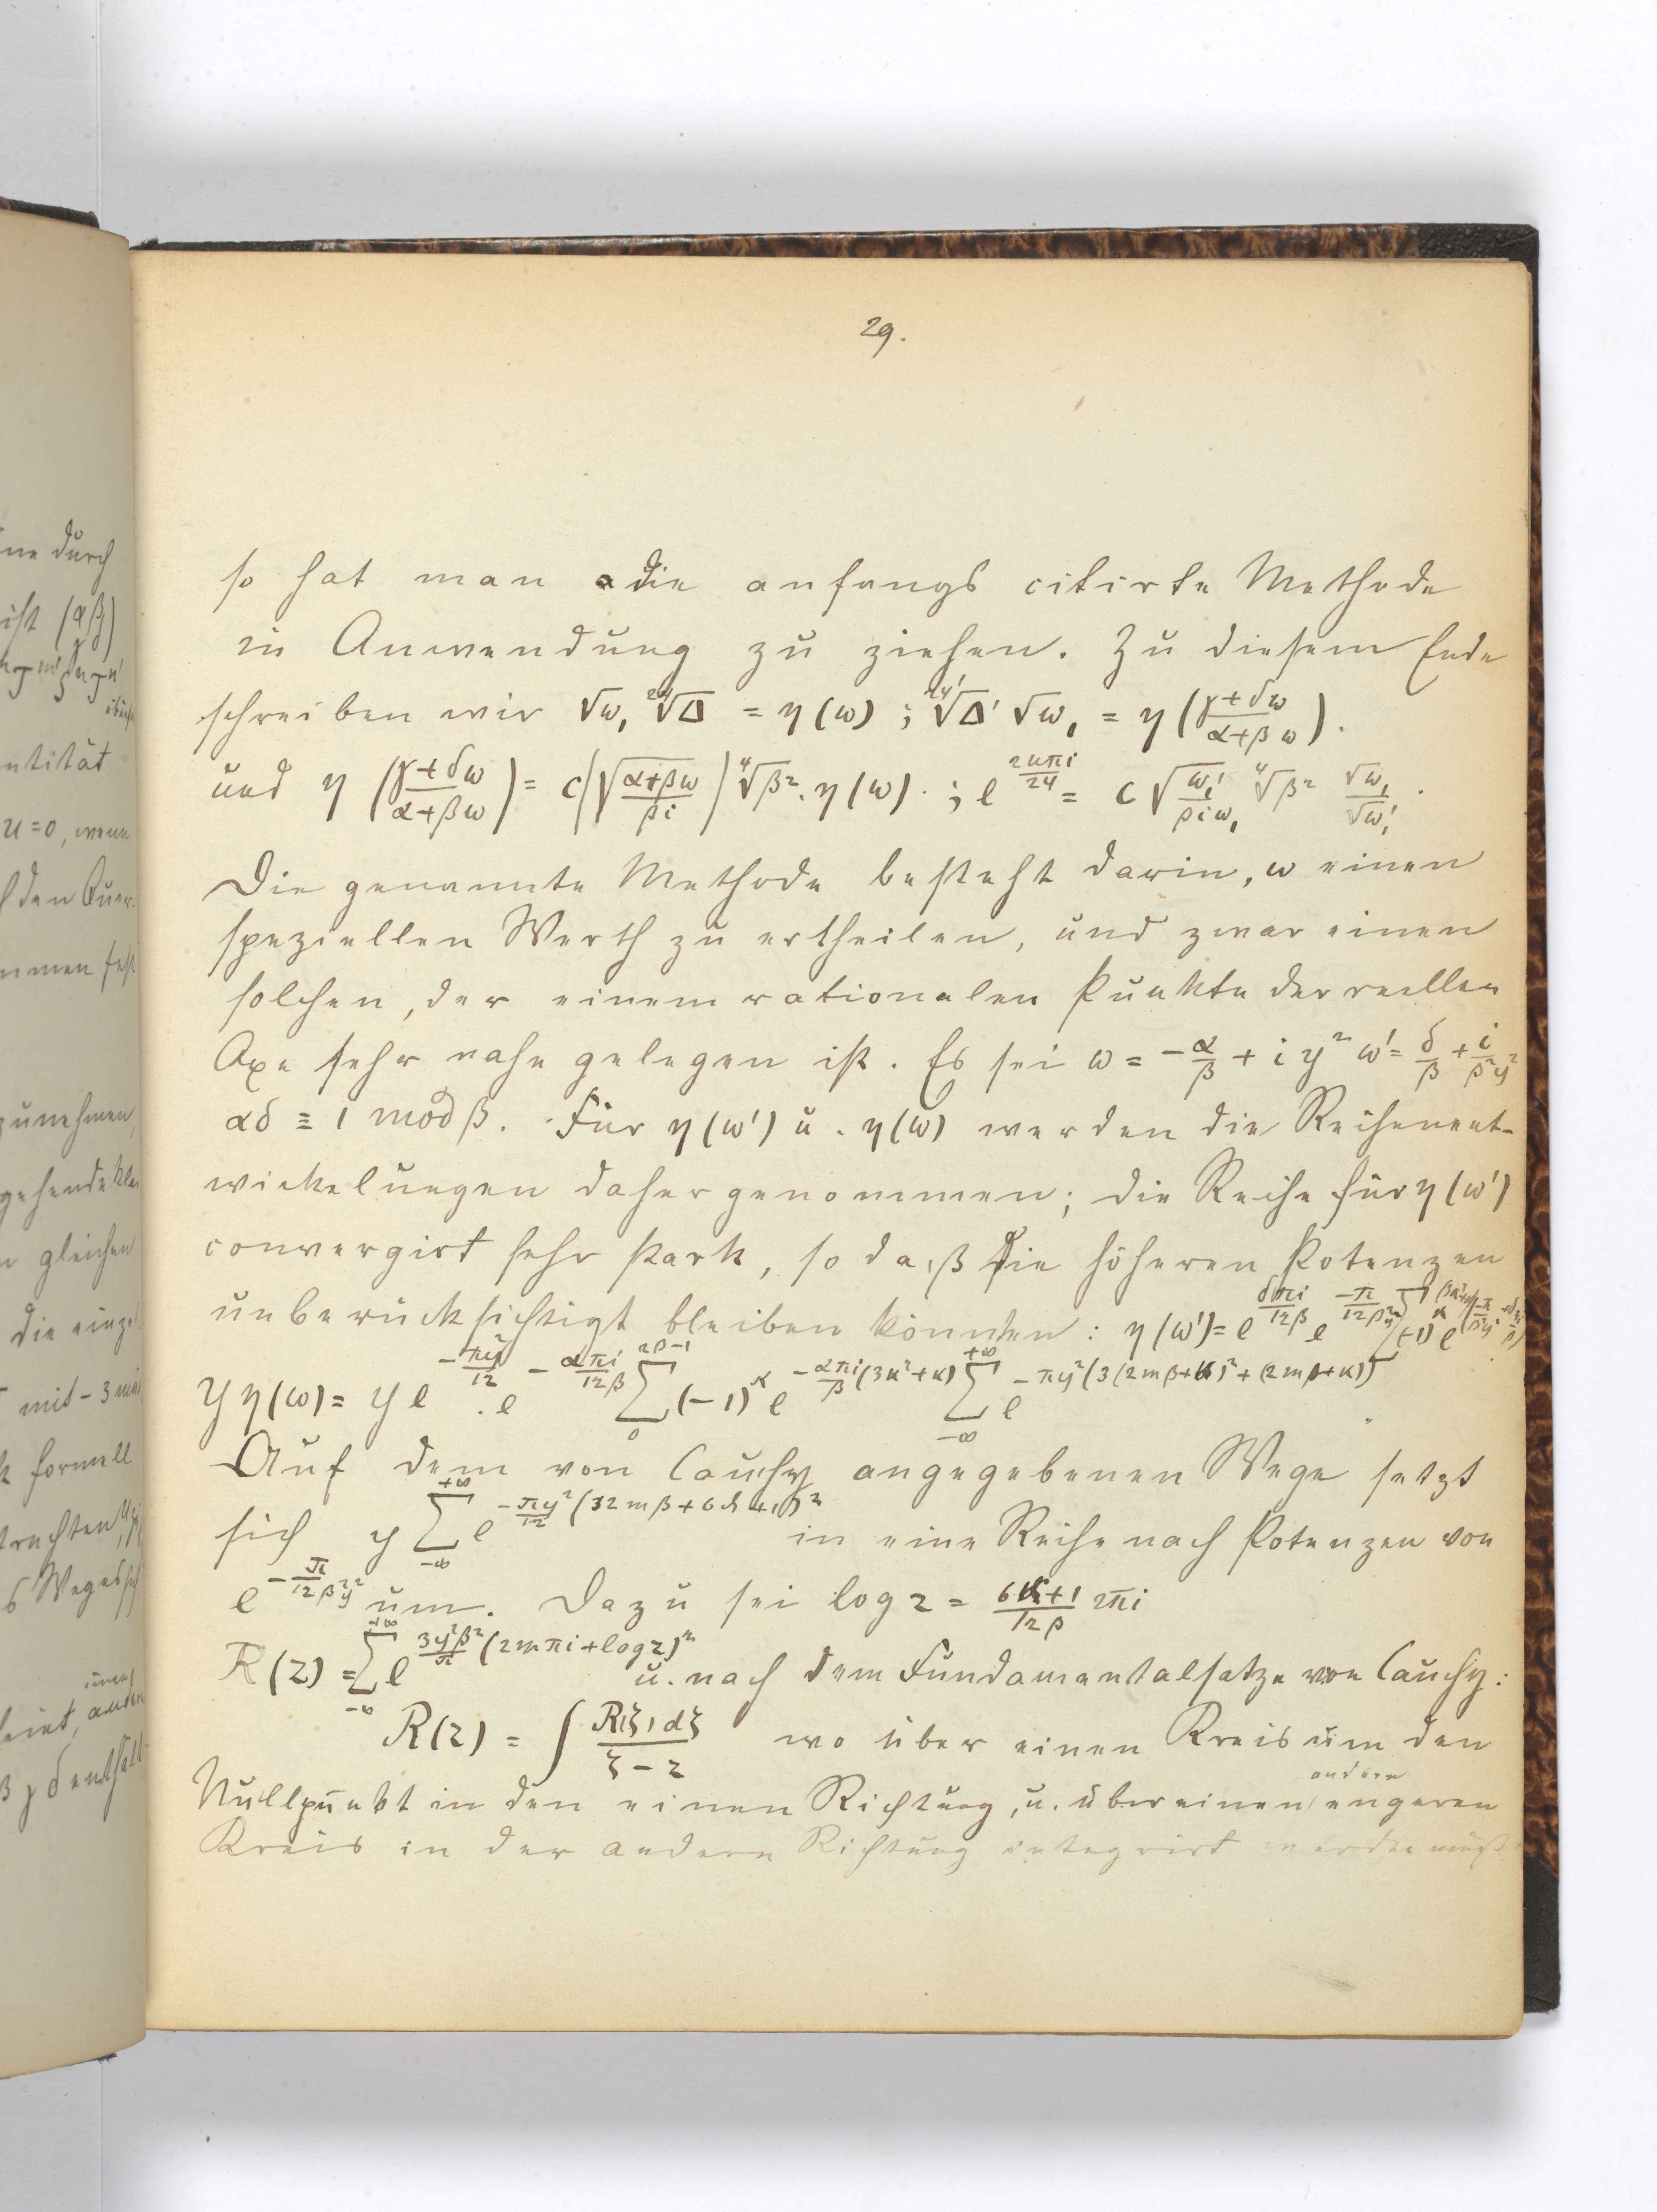 29.
ne durch
ist (αβ)
entität
u=0, wenn
den Quer-
zunehmen,
gehende
n gleichen
die einzel
mit -3
formell
so hat man die anfangs citirte Methode
in Anwendung zu ziehen. Zu diesem Ende
schreiben wir √ω₁ ²⁴√Δ = η(ω) ; ²⁴√Δ' √ω₁' = η((γ+δω)/(α+βω)).
und η((γ+δω)/(α+βω)) = c(√((α+βω)/(βi))) ⁴√β². η(ω). ; e^(2uπi/24) = c √(ω₁'/(βiω₁)) ⁴√β² √ω₁/√ω₁'.
Die genannte Methode besteht darin, ω einen
speziellen Werth zu ertheilen, und zwar einen
solchen, der einem rationalen Punkte der reellen
Axe sehr nahe gelegen ist. Es sei ω = -α/β + iy² ω' = δ/β + i/(β²y²)
αδ ≡ 1 mod β. Für η(ω') u. η(ω) werden die Reihenent-
wickelungen daher genommen; die Reihe für η(ω')
convergirt sehr stark, so daß die höheren Potenzen
unberücksichtigt bleiben können: η(ω') = e^(δπi/12β) e^(-π/12β²y²) Σ(-1)^κ e
yη(ω) = y e^(-πy²/12) . e^(-απi/12β) Σ_0^(2β-1) (-1)^κ e^(-απi/β (3κ²+κ)) Σ_(-∞)^(+∞) e^(-πy²(3(2mβ+κ)²+(2mβ+κ)))
Auf dem von Cauchy angegebenen Wege setzt
sich y Σ_(-∞)^(+∞) e^(-πy²/12 (12mβ+6κ+1)²) in eine Reihe nach Potenzen von
e^(-π/12β²y²) um. Dazu sei log z = (6κ+1)/12β 2πi
R(z) = Σ_(-∞)^(+∞) e^(3y²β²/π (2mπi+log z)²) u. nach dem Fundamentalsatze von Cauchy:
R(z) = ∫ R(ζ)dζ/(ζ-z) wo über einen Kreis um den
Nullpunkt in den einen Richtung, u. über einen andern engeren
Kreis in der andern Richtung integrirt werden muß